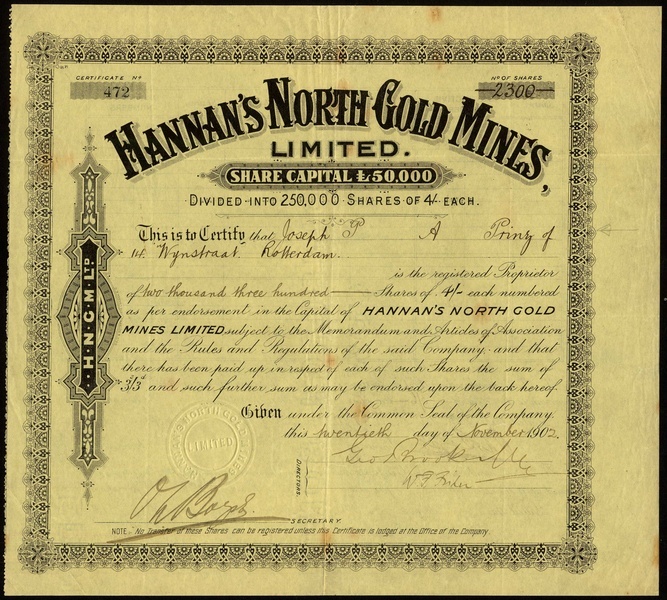 CERTIFICATE Nº
472
Nº OF SHARES
2300
HANNAN'S NORTH GOLD MINES,
LIMITED.
SHARE CAPITAL £50,000
DIVIDED INTO 250,000 SHARES OF 4/- EACH.
This is to Certify that Joseph P A Prinz of
14. Wynstraat. Rotterdam.
is the registered Proprietor
of two thousand three hundred Shares of 4/- each numbered
as per endorsement in the Capital of HANNAN'S NORTH GOLD
MINES LIMITED subject to the Memorandum and Articles of Association
and the Rules and Regulations of the said Company, and that
there has been paid up in respect of each of such Shares the sum of
3/3d and such further sum as may be endorsed upon the back hereof.
Given under the Common Seal of the Company.
this twentieth day of November 1902.
H.N.G.M. LTD.
HANNAN'S NORTH GOLD MINES
LIMITED
DIRECTORS.
SECRETARY.
NOTE. No Transfer of these Shares can be registered unless this Certificate is lodged at the Office of the Company